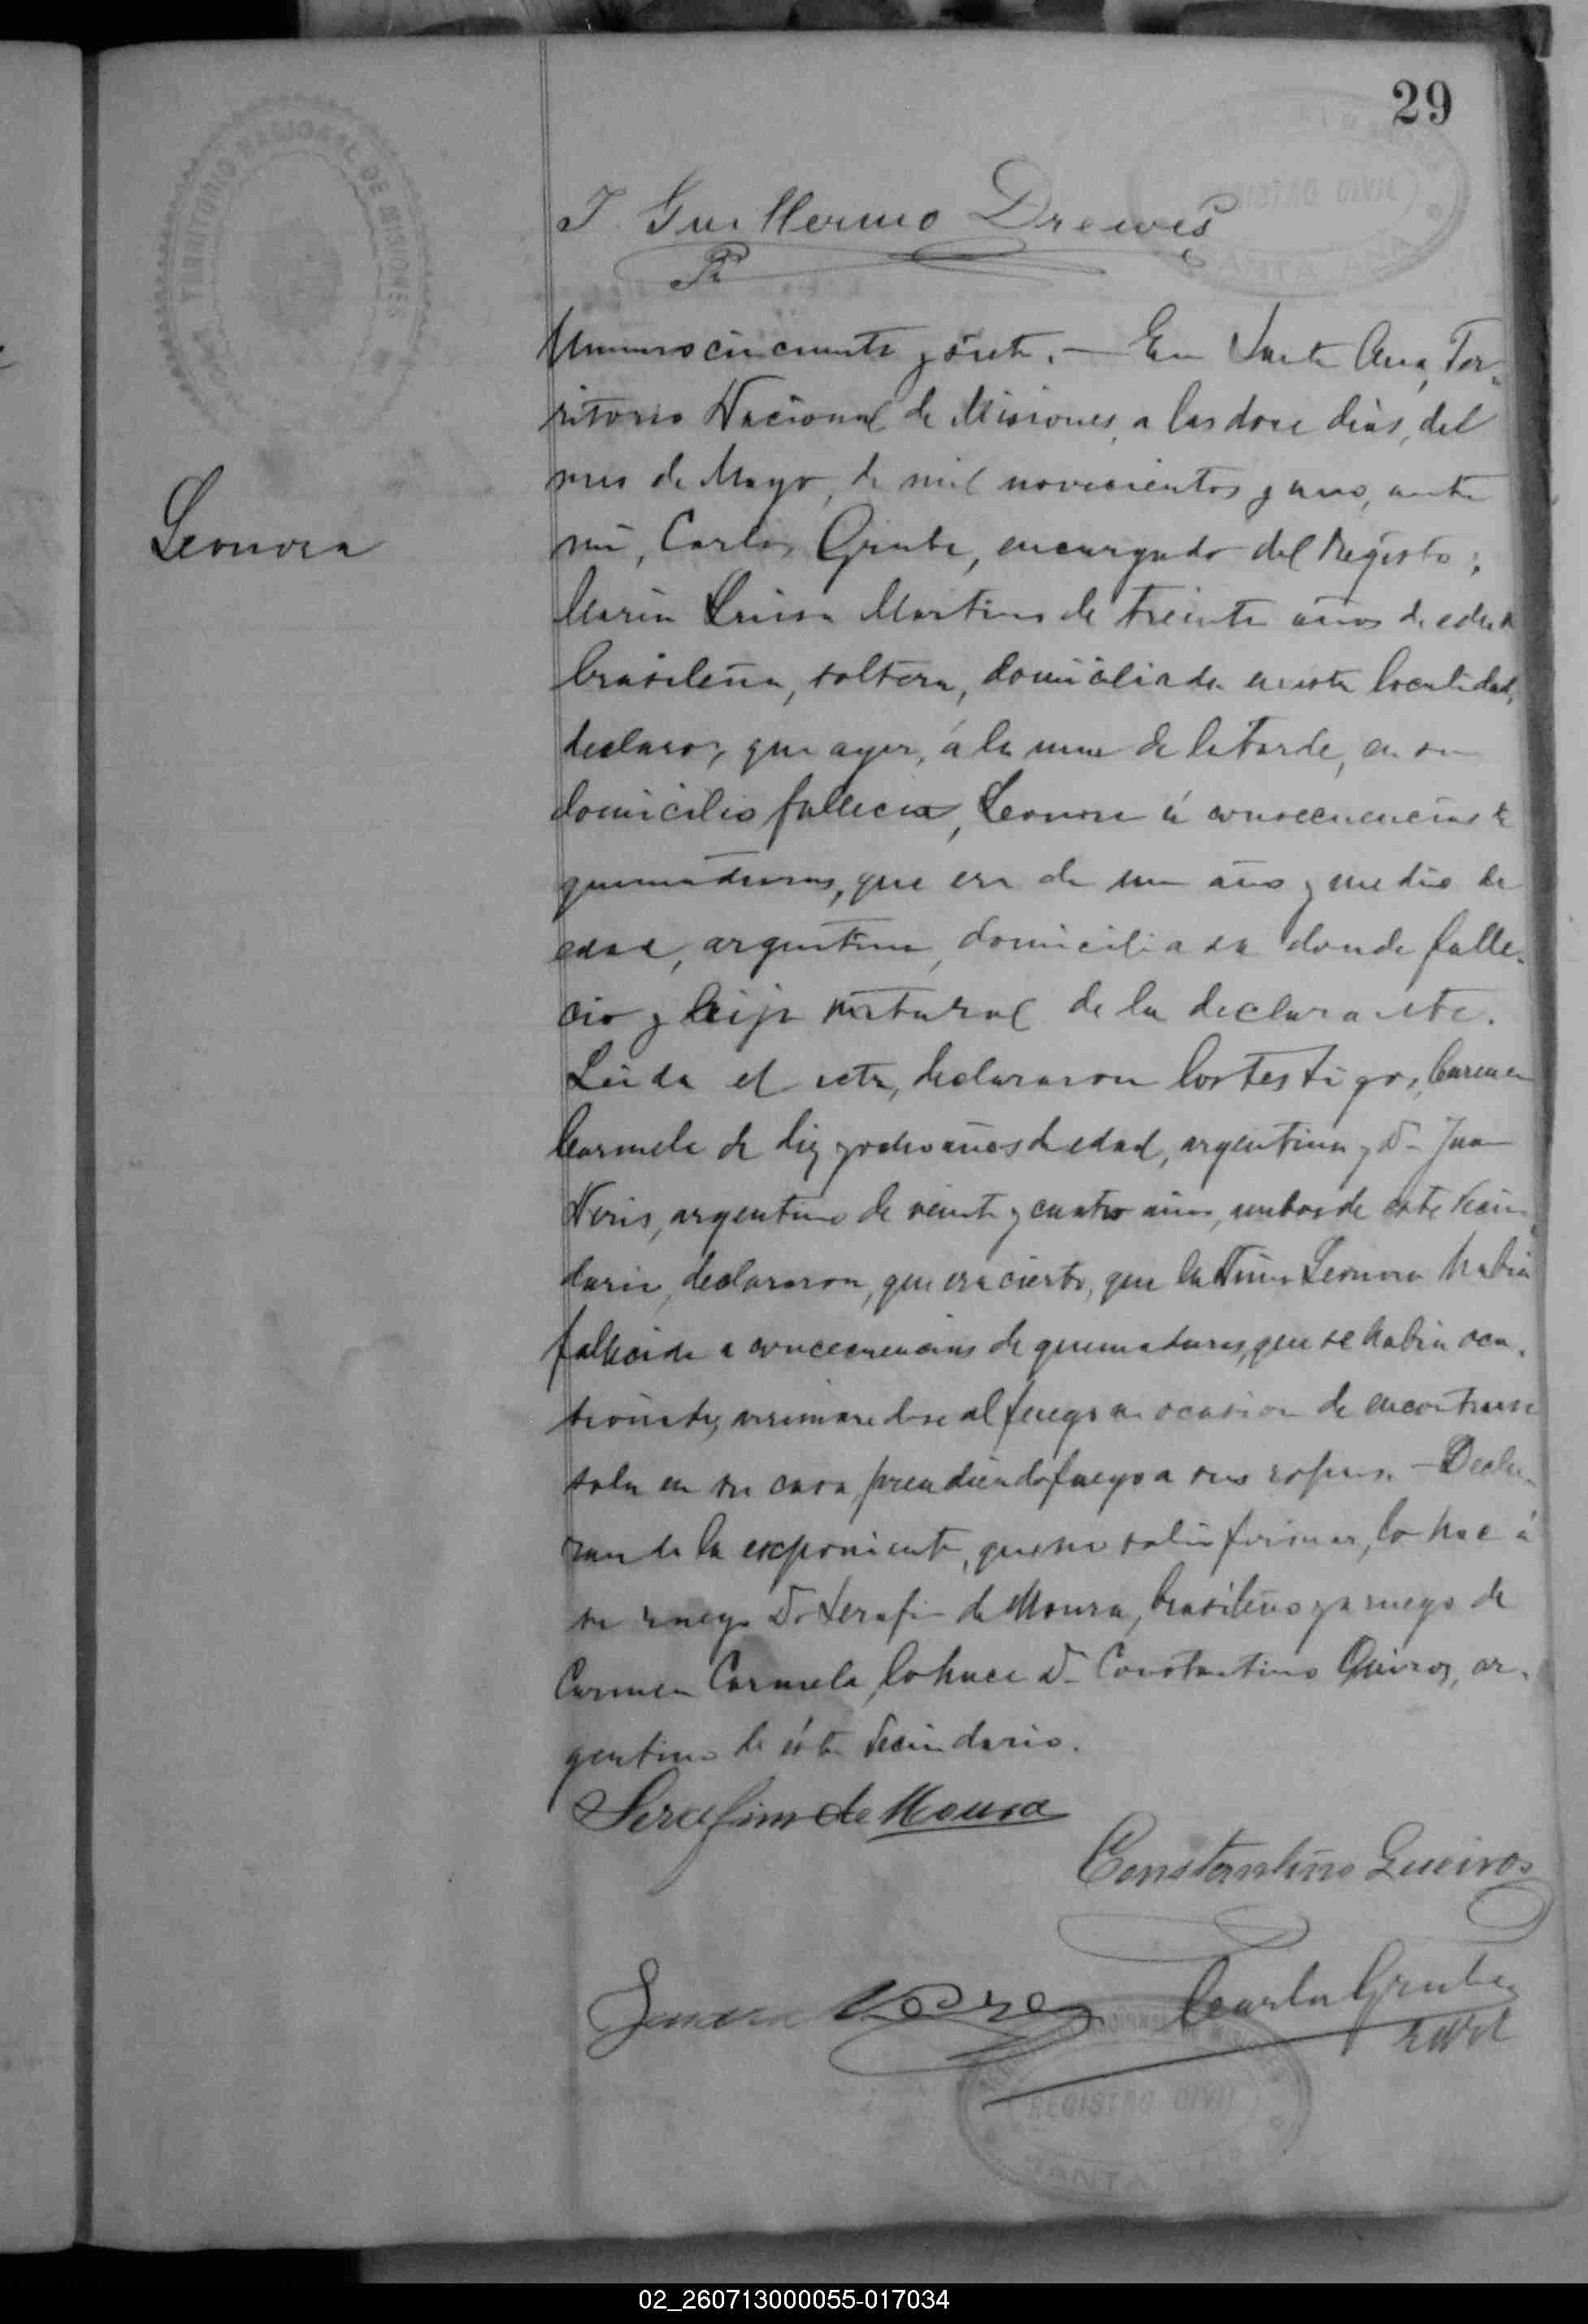 29
TERRITORIO NACIONAL DE MISIONES
J. Guillermo Drewes
Leonora
Numero cincuenta y siete. — En Santa Ana, Ter-
ritorio Nacional de Misiones, a los doce dias, del
mes de Mayo, de mil novecientos y uno, ante
mi, Carlos Grube, encargado del Registo;
Maria Luisa Martins de treinta años de edad
brasileña, soltera, domiciliada en esta localidad,
declaro, que ayer, á la una de la tarde, en su
domicilio fallecia, Leonora á consecuencias de
quemaduras, que era de un año y medio de
edad, argentina, domiciliada donde falle-
cio y hija natural de la declarante.
Leida el acta, declararon los testigos, Carmen
Carmela de diez y ocho años de edad, argentina y Dn Juan
Neris, argentino de veinte y cuatro años, ambos de este vecin-
dario, declararon, que era cierto, que la Niña Leonora habia
fallecida a concecuencias de quemaduras, que se habia oca-
arrimandose al fuego en ocasion de encontrarse
sola en su casa prendiendo fuego a sus ropas. — Decla-
rando la exponiente, que no sabia firmar, lo hace á
su ruego Dn Serafin de Moura, brasileño y a ruego de
Carmen Carmela, lo hace Dn Constantino Queiroz, ar-
gentino de ésta vecindario.
Serafim de Moura
Constantino Queiros
Carlos Grube
REGISTRO CIVIL
02_260713000055-017034